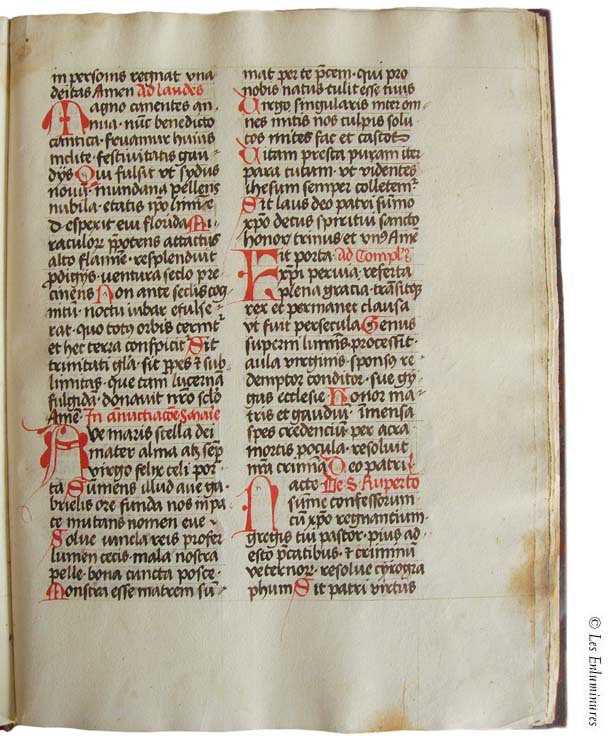 in personis regnat vna
deitas Amen Ad laudes
Magno canentes an-
nua · nūc benedicto
cantica · fruamur huius
inclite · festiuitatis gau-
dijs Qui fulsit vt sydus
nouū · mundana pellens
nubila · etatis
d esperit eui florida Mi-
raculor p̄potens attactus
alto flamīe · resplenduit
prodigijs · ventura sēclo pre-
cinens Non ante sēclis cog-
nitū · noctu iubar effulse-
rat · quo totꝰ orbis cernitᷣ
et hec terra conspicit Sit
trinitati glā · sit ꝑpes ⁊ sub-
limitas · que tam lucernā
fulgidā · donauit nr̄o sc̄lo
Amē · In anūciacōe S marie
Ave maris stella dei
mater alma atꝫ semꝑ
virgo felix celi por-
ta Sumens illud aue ga-
brielis ore funda nos in pa-
ce mutans nomen eue
Solue vincla reis profer
lumen cecis · mala nostra
pelle · bona cuncta posce ·
Monstra esse matrem sū-
mat per te p̄cem · qui pro
nobis natus tulit esse tuus
Virgo singularis inter om-
nes mitis nos culpis solu-
tos mites fac et castos
Vitam presta puram iter
para tutum · vt videntes
Jhesum semper colletemᷣ
Sit laus deo patri sūmo
xp̄o decus spiritui sancto
honor trinus et vnꝰ Amē
Fit porta Ad Complꝫ
xp̄i peruia · referta
plena gratia · trāsitqꝫ
rex et permanet clausa
vt fuit per secula Genus
superni luminis processit ·
aula virginis · sponsꝰ re-
demptor conditor · sue gy-
gas ecclesie Honor ma-
tris et gaudiū · imensa
spes credenciū · per atra
mortis pocula · resoluit
nr̄a crimina Deo patri
De S Ruperto
Nacte
sūme confessorum
cū xp̄o regnantium ·
gregis tui pastor · pius ad-
esto p̄catibus · ⁊ criminum
veternor · resolue cyrogra
phum Sit patri virtus
© Les Enluminures